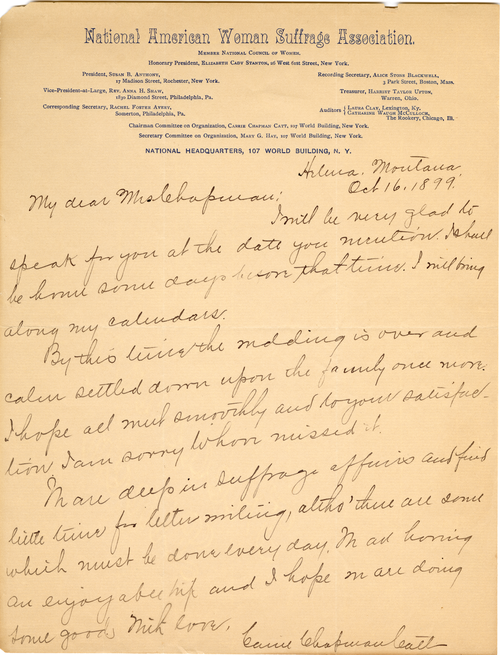 National American Woman Suffrage Association.
Member National Council of Women.
Honorary President, Elizabeth Cady Stanton, 26 West 61st Street, New York.
President, Susan B. Anthony,
17 Madison Street, Rochester, New York.
Vice-President-at-Large, Rev. Anna H. Shaw,
1830 Diamond Street, Philadelphia, Pa.
Corresponding Secretary, Rachel Foster Avery,
Somerton, Philadelphia, Pa.
Recording Secretary, Alice Stone Blackwell,
3 Park Street, Boston, Mass.
Treasurer, Harriet Taylor Upton,
Warren, Ohio.
Auditors { Laura Clay, Lexington, Ky.
Catharine Waugh McCulloch,
The Rookery, Chicago, Ill.
Chairman Committee on Organization, Carrie Chapman Catt, 107 World Building, New York.
Secretary Committee on Organization, Mary G. Hay, 107 World Building, New York.
NATIONAL HEADQUARTERS, 107 WORLD BUILDING, N. Y.
Helena. Montana.
Oct 16, 1899.
My dear Mrs Chapman;
I will be very glad to
speak for you at the date you mention. I shall
be home some days before that time. I will bring
along my calendars.
By this time the wedding is over and
calm settled down upon the family once more.
I hope all went smoothly and to your satisfac-
tion. I am sorry to have missed it.
We are deep in suffrage affairs and find
little time for letter writing, altho' there are some
which must be done every day. We are having
an enjoyable trip and I hope we are doing
some good. With love,
Carrie Chapman Catt